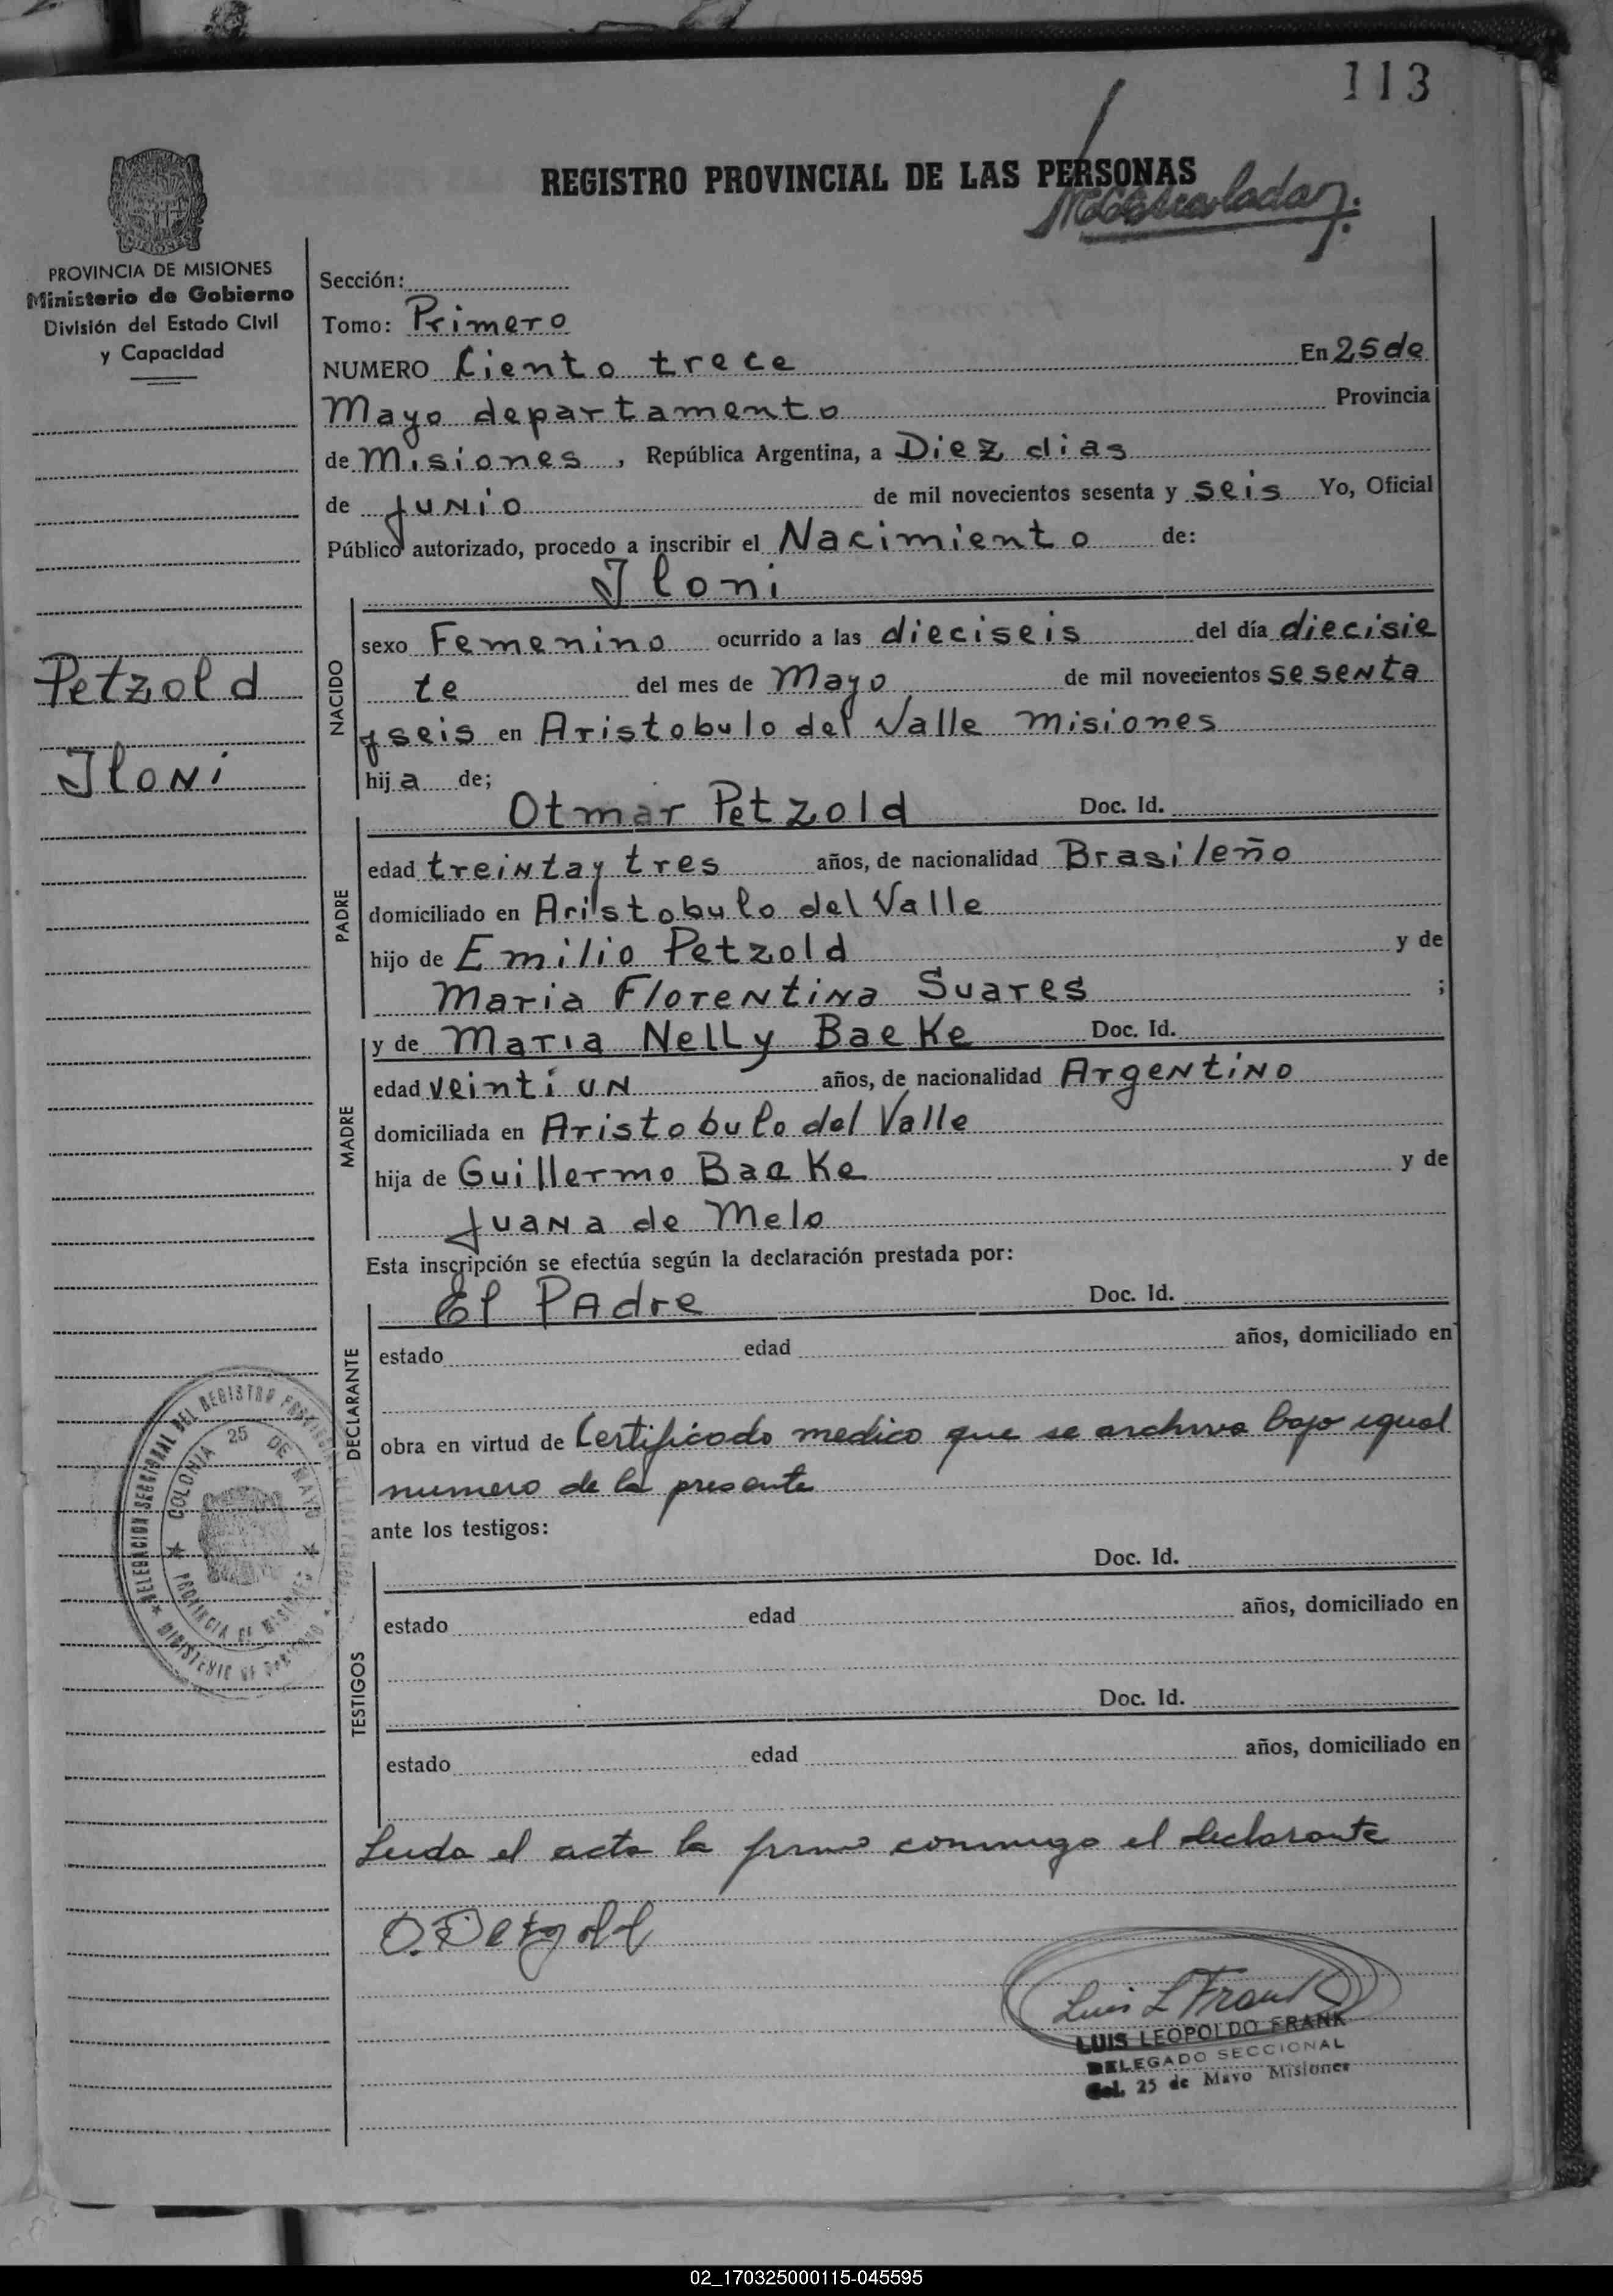 113
REGISTRO PROVINCIAL DE LAS PERSONAS
PROVINCIA DE MISIONES
Ministerio de Gobierno
División del Estado Civil
y Capacidad
Sección:
Tomo: Primero
NUMERO Ciento trece En 25 de
Mayo departamento Provincia
de Misiones, República Argentina, a Diez dias
de Junio de mil novecientos sesenta y seis Yo, Oficial
Público autorizado, procedo a inscribir el Nacimiento de:
Iloni
NACIDO
sexo Femenino ocurrido a las dieciseis del día diecisie
te del mes de Mayo de mil novecientos sesenta
y seis en Aristobulo del Valle Misiones
hija de;
Petzold
Iloni
PADRE
Otmar Petzold Doc. Id.
edad treinta y tres años, de nacionalidad Brasileño
domiciliado en Aristobulo del Valle
hijo de Emilio Petzold y de
Maria Florentina Suares ;
MADRE
y de Maria Nelly Baeke Doc. Id.
edad veinti un años, de nacionalidad Argentino
domiciliada en Aristobulo del Valle
hija de Guillermo Baeke y de
Juana de Melo
Esta inscripción se efectúa según la declaración prestada por:
DECLARANTE
El Padre Doc. Id.
estado edad años, domiciliado en
obra en virtud de Certificado medico que se archiva bajo igual
numero de la presente
DELEGACION SECCIONAL DEL REGISTRO
COLONIA 25 DE MAYO
PROVINCIA DE MISIONES
MINISTERIO DE GOBIERNO
ante los testigos:
TESTIGOS
Doc. Id.
estado edad años, domiciliado en
Doc. Id.
estado edad años, domiciliado en
Leida el acta la firma conmigo el declarante
O. Petzold
Luis L Frank
LUIS LEOPOLDO FRANK
DELEGADO SECCIONAL
Col. 25 de Mayo Misiones
02_170325000115-045595